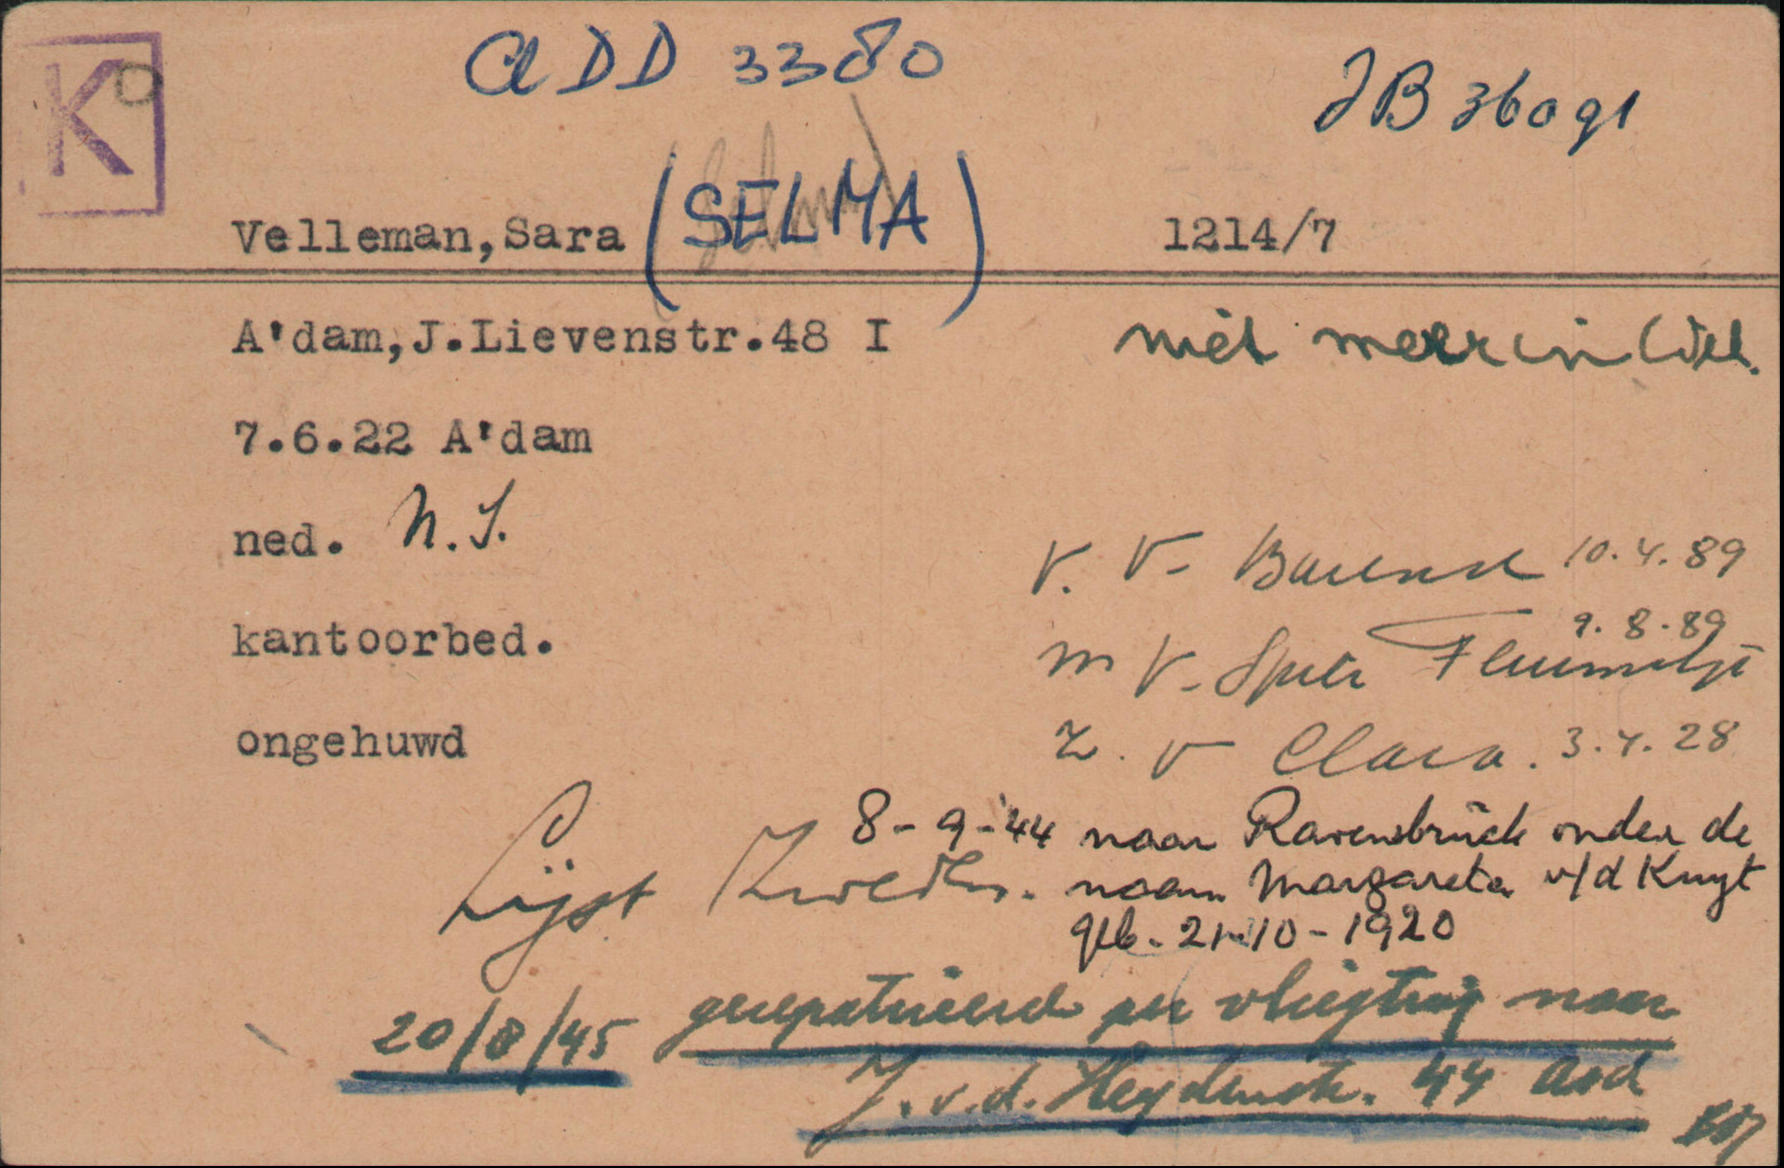 K
a DD 3380
JB 36091
Velleman, Sara (SELMA) 1214/7
A'dam, J.Lievenstr.48 I
niet meer in Wet.
7.6.22 A'dam
ned. N.I.
V. V- Barend 10.4.89
kantoorbed.
9.8.89
m V- Spier Femmetje
ongehuwd
Z. V Clara. 3.4.28
8-9-'44 naar Ravensbrück onder de
Lijst Zweden. naam Margareta v/d Kuyt
geb. 21-10-1920
20/8/45 gerepatrieerd per vliegtuig naar
J. v.d. Heydenstr. 44 Asd